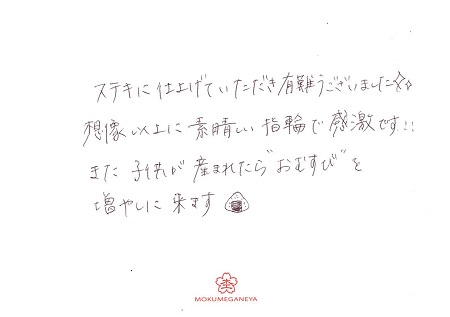 ステキに仕上げていただき有難うございました☆☆
想像以上に素晴しい指輪で感激です!!
また子供が産まれたら"おむすび"を
増やしに来ます
MOKUMEGANEYA